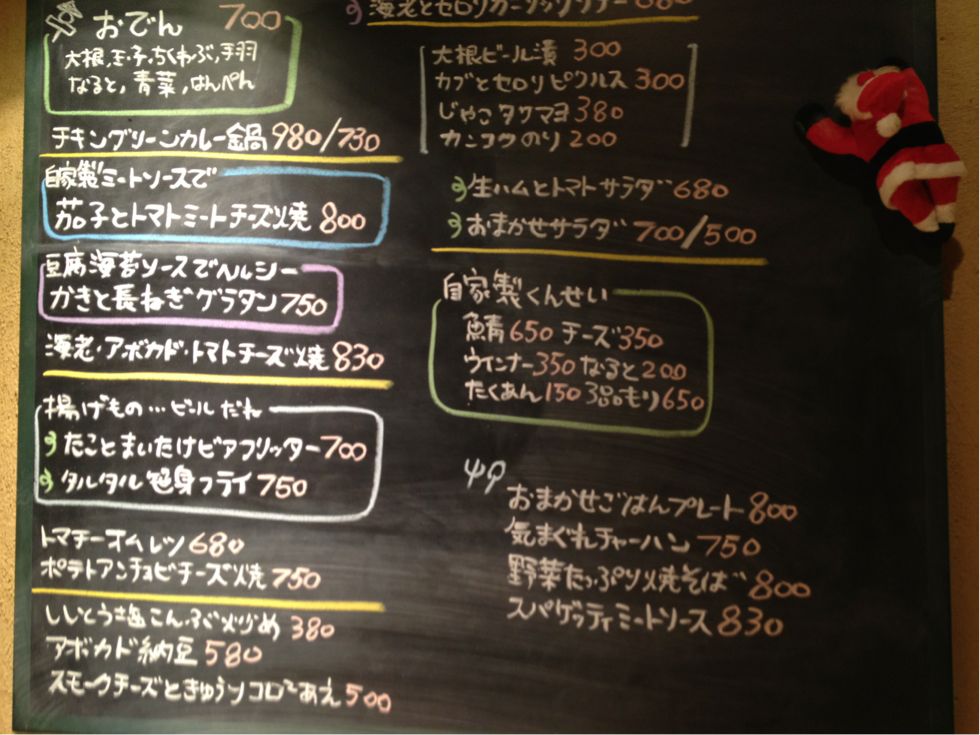 おでん 700
大根,玉子,ちくわぶ,手羽
なると,青菜,はんぺん
チキングリーンカレー鍋 980/730
自家製ミートソースで
茄子とトマトミートチーズ焼 800
豆腐海苔ソースでヘルシー
かきと長ねぎグラタン 750
海老・アボカド・トマトチーズ焼 830
揚げもの…ビールだね
たことまいたけビアフリッター 700
タルタル 身フライ 750
トマチーオムレツ 680
ポテトアンチョビチーズ焼 750
ししとう塩こんぶ炒め 380
アボカド納豆 580
スモークチーズときゅうりコロコロあえ 500
海老とセロリガーリックソテー 680
大根ビール漬 300
カブとセロリピクルス 300
じゃこタクマヨ 380
カンコクのり 200
生ハムとトマトサラダ 680
おまかせサラダ 700/500
自家製くんせい
鯖 650 チーズ 350
ウインナー 350 なると 200
たくあん 150 3品もり 650
おまかせごはんプレート 800
気まぐれチャーハン 750
野菜たっぷり焼そば 800
スパゲッティミートソース 830